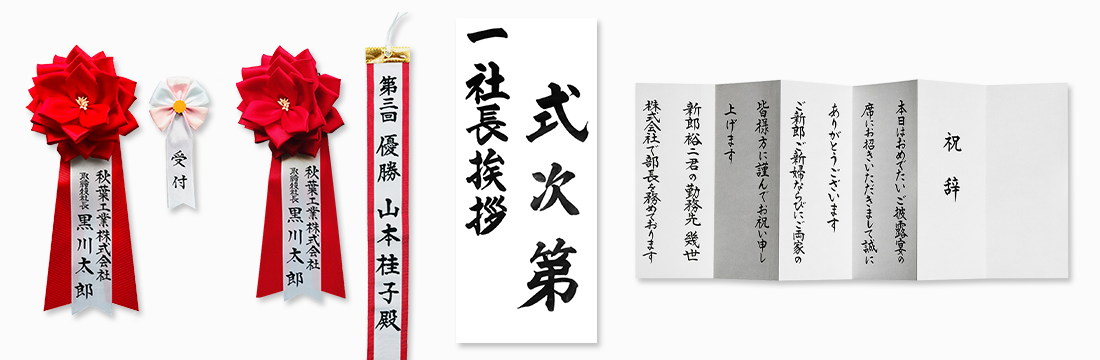 秋葉工業株式会社
取締役社長 黒川太郎
受付
秋葉工業株式会社
取締役社長 黒川太郎
第三回 優勝 山本桂子殿
式次第
一社長挨拶
祝辞
本日はおめでたいご披露宴の
席にお招きいただきまして誠に
ありがとうございます
ご新郎ご新婦ならびにご両家の
皆様方に謹んでお祝い申し
上げます
新郎裕二君の勤務先幾世
株式会社で部長を務めております